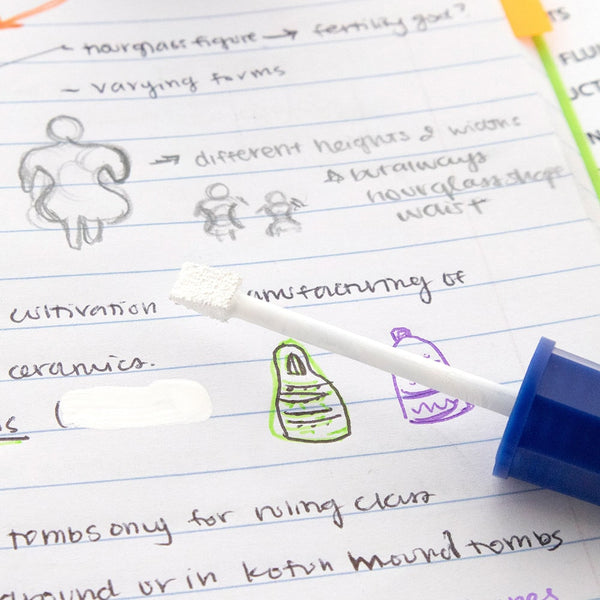 - hourglass figure → fertility god?
- varying forms
→ different heights & widths
↳ but always
hourglass shape
waist
cultivation
manufacturing of
ceramics.
(
tombs only for ruling class
ground or in kofun mound tombs
TS
FLU
UCT
N